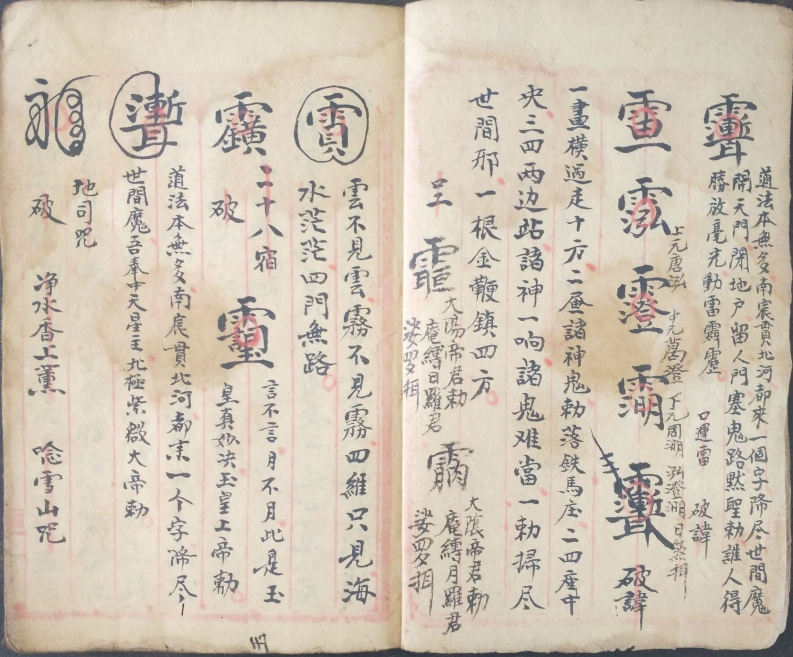 道法本無多南宸貫北河都來一個字降尽世間魔
開天門閉地户留人門塞鬼路黙聖勅誰人得
勝放毫光動雷霹靂
口運雷 破諱
上元唐泓 中元葛澄 下元周湖 泓澄湖日煞揖
泓 澄 湖
破諱
一畫橫過走十方二畫諸神鬼勅落鉄馬庄二四座中
央三四两边跕諸神一响諸鬼难當一勅掃尽
世間邪一根金鞭鎮四方
大陽帝君勅
唵縛日羅君
娑婆揖
大陰帝君勅
唵縛月羅君
娑婆揖
雲不見雲霧不見霧四維只見海
水茫茫四門無路
二十八宿
破
言不言月不月此是玉
皇真妙决玉皇上帝勅
道法本無多南宸貫北河都來一个字降尽
世間魔吾奉中天星主北極紫微大帝勅
地司咒
破 净水香上薰 唸雪山咒